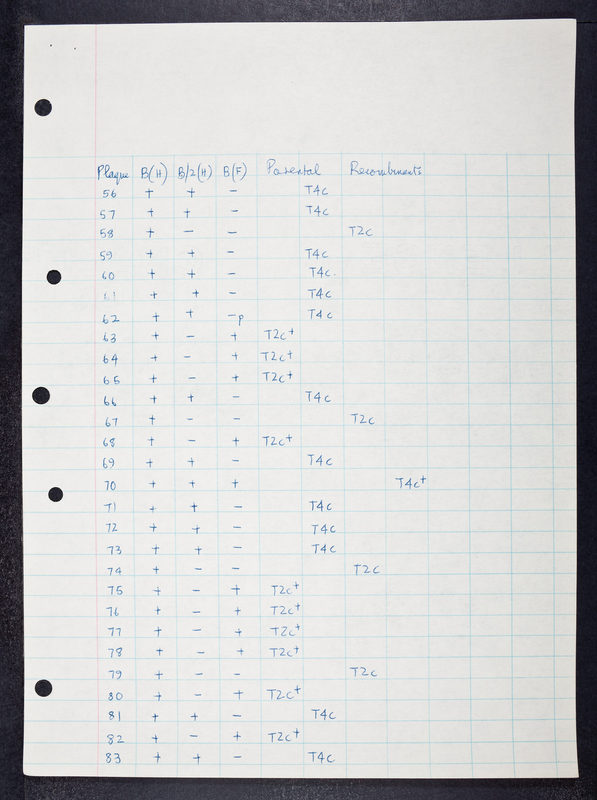 Plaque B(H) B/2(H) B(F) Parental Recombinants
56 + + - T4c
57 + + - T4c
58 + - - T2c
59 + + - T4c
60 + + - T4c.
61 + + - T4c
62 + + -p T4c
63 + - + T2c+
64 + - + T2c+
65 + - + T2c+
66 + + - T4c
67 + - - T2c
68 + - + T2c+
69 + + - T4c
70 + + + T4c+
71 + + - T4c
72 + + - T4c
73 + + - T4c
74 + - - T2c
75 + - + T2c+
76 + - + T2c+
77 + - + T2c+
78 + - + T2c+
79 + - - T2c
80 + - + T2c+
81 + + - T4c
82 + - + T2c+
83 + + - T4c